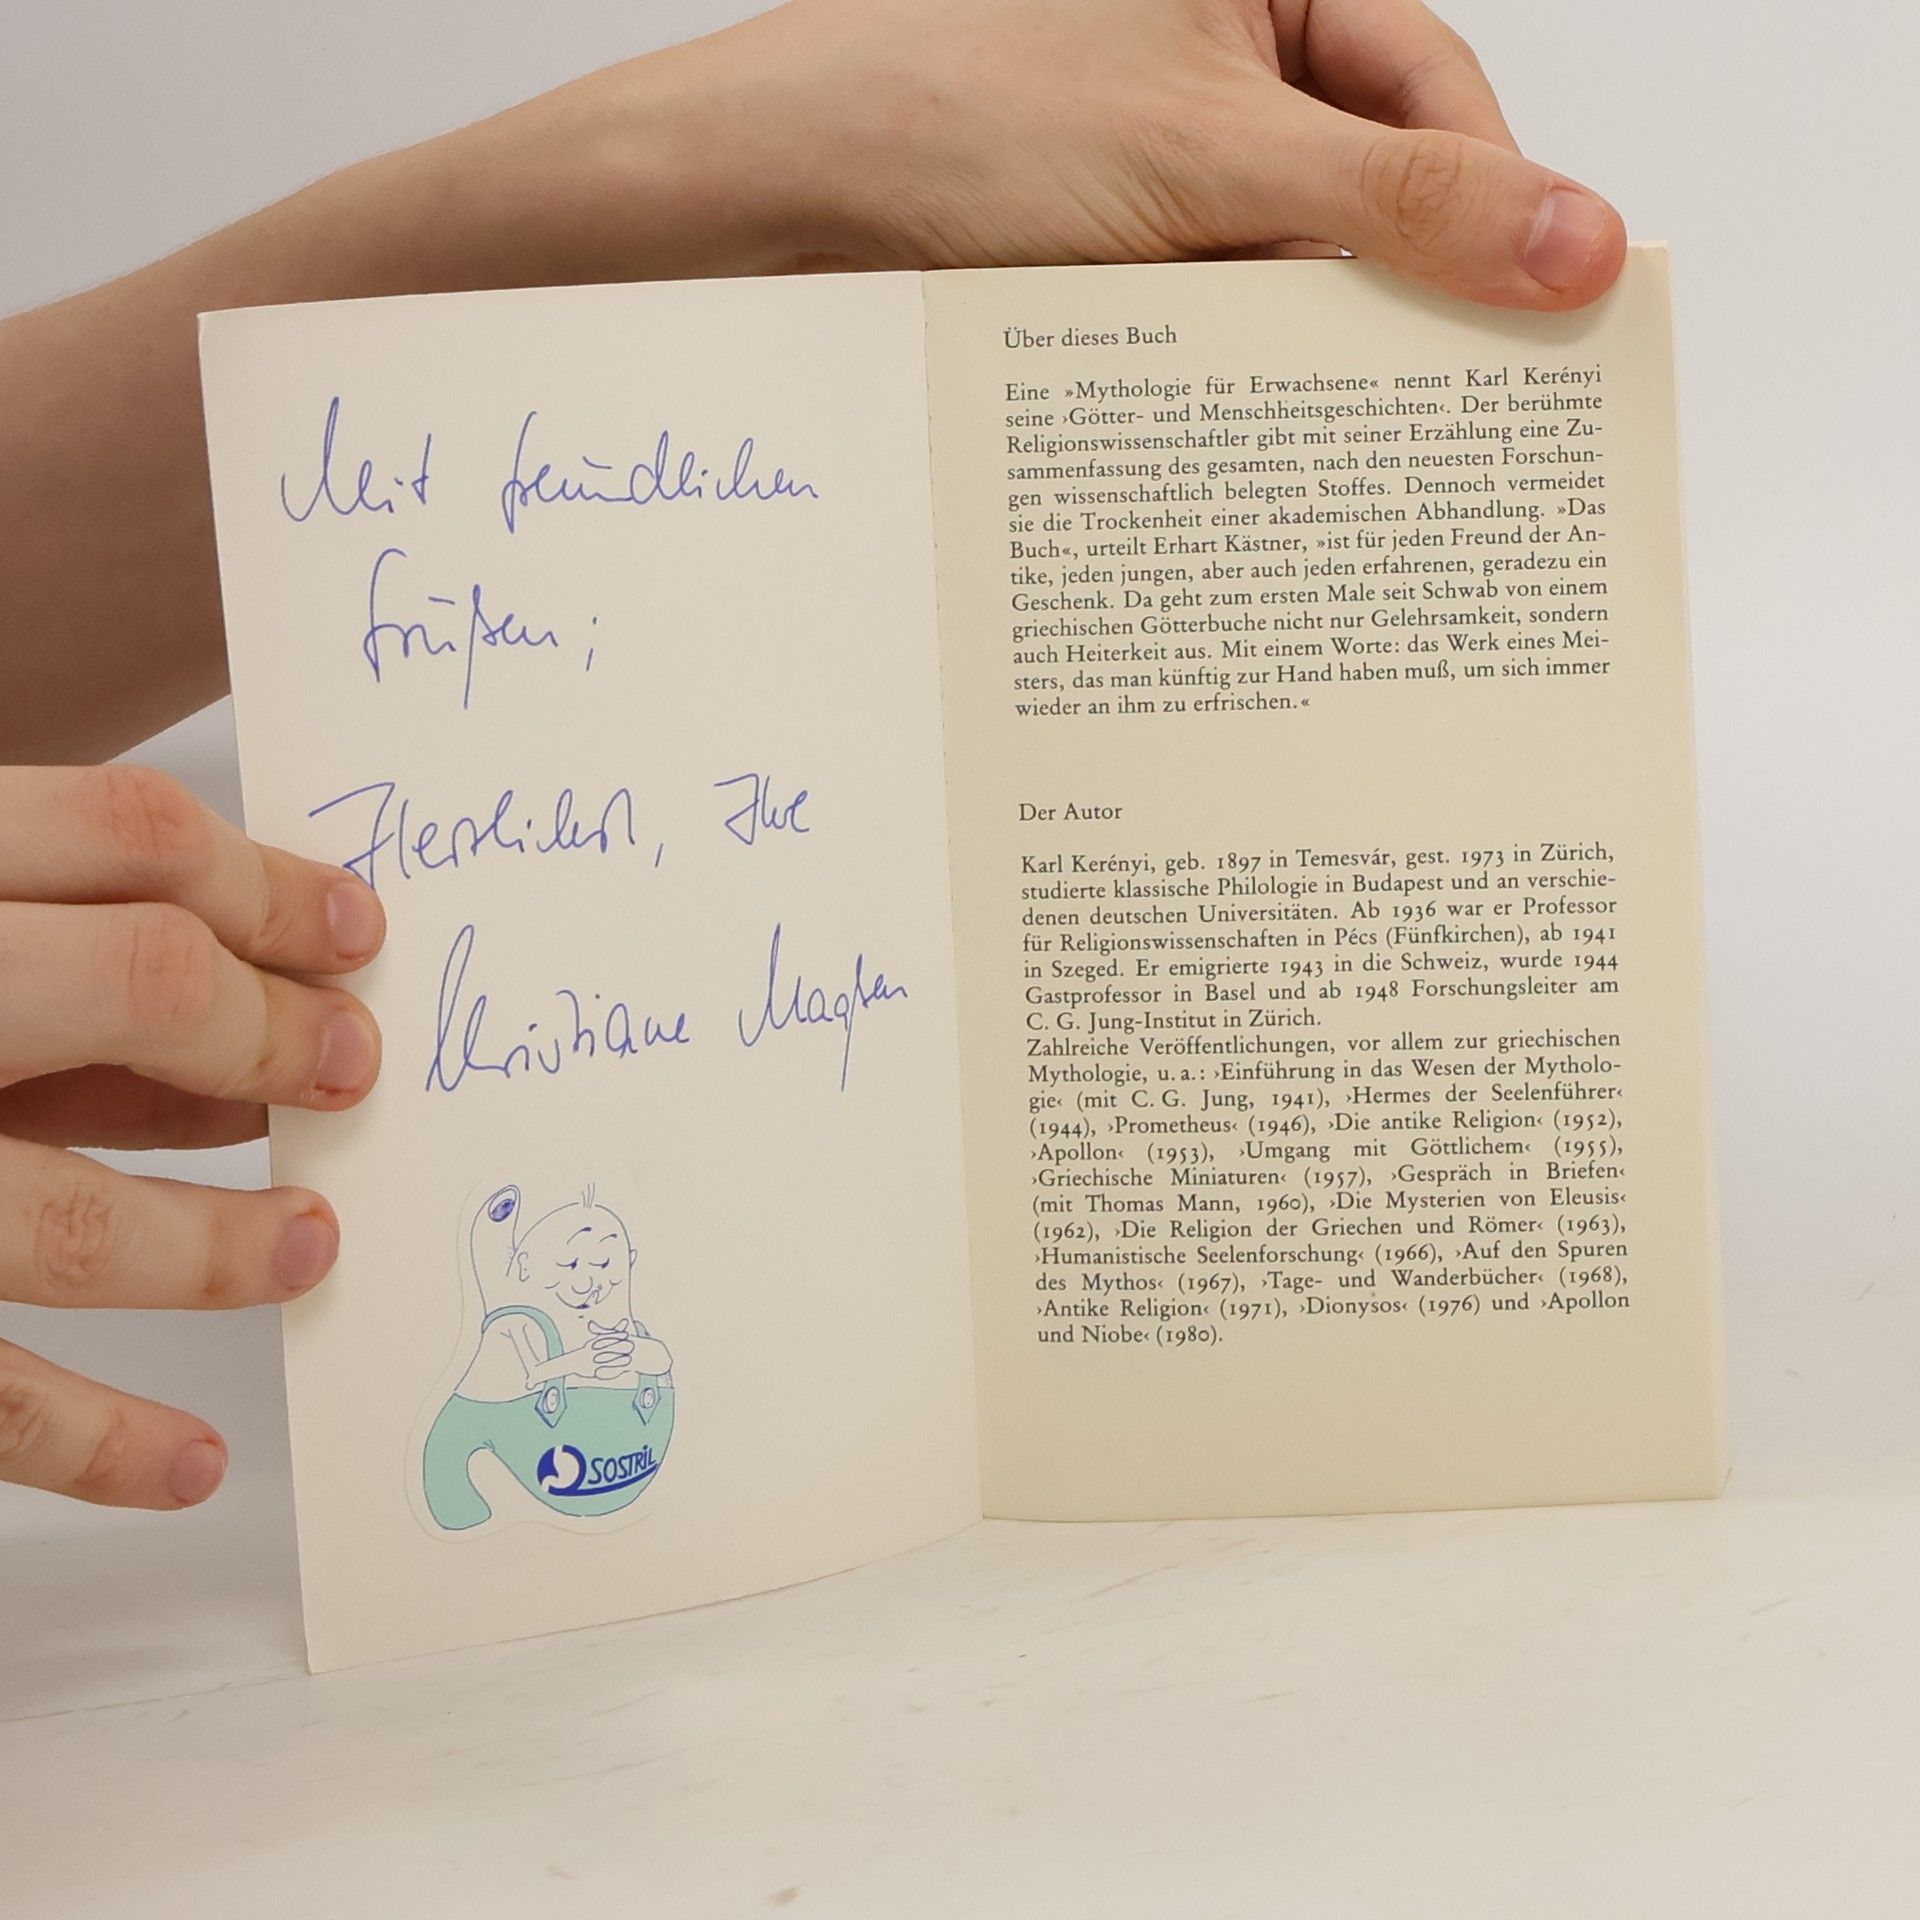 Mit freundlichen
Grüßen;
Herzlichst, Ihre
Christiane
SOSTRIL
Über dieses Buch
Eine »Mythologie für Erwachsene« nennt Karl Kerényi
seine ›Götter- und Menschheitsgeschichten‹. Der berühmte
Religionswissenschaftler gibt mit seiner Erzählung eine Zu-
sammenfassung des gesamten, nach den neuesten Forschun-
gen wissenschaftlich belegten Stoffes. Dennoch vermeidet
sie die Trockenheit einer akademischen Abhandlung. »Das
Buch«, urteilt Erhart Kästner, »ist für jeden Freund der An-
tike, jeden jungen, aber auch jeden erfahrenen, geradezu ein
Geschenk. Da geht zum ersten Male seit Schwab von einem
griechischen Götterbuche nicht nur Gelehrsamkeit, sondern
auch Heiterkeit aus. Mit einem Worte: das Werk eines Mei-
sters, das man künftig zur Hand haben muß, um sich immer
wieder an ihm zu erfrischen.«
Der Autor
Karl Kerényi, geb. 1897 in Temesvár, gest. 1973 in Zürich,
studierte klassische Philologie in Budapest und an verschie-
denen deutschen Universitäten. Ab 1936 war er Professor
für Religionswissenschaften in Pécs (Fünfkirchen), ab 1941
in Szeged. Er emigrierte 1943 in die Schweiz, wurde 1944
Gastprofessor in Basel und ab 1948 Forschungsleiter am
C. G. Jung-Institut in Zürich.
Zahlreiche Veröffentlichungen, vor allem zur griechischen
Mythologie, u. a.: ›Einführung in das Wesen der Mytholo-
gie‹ (mit C. G. Jung, 1941), ›Hermes der Seelenführer‹
(1944), ›Prometheus‹ (1946), ›Die antike Religion‹ (1952),
›Apollon‹ (1953), ›Umgang mit Göttlichem‹ (1955),
›Griechische Miniaturen‹ (1957), ›Gespräch in Briefen‹
(mit Thomas Mann, 1960), ›Die Mysterien von Eleusis‹
(1962), ›Die Religion der Griechen und Römer‹ (1963),
›Humanistische Seelenforschung‹ (1966), ›Auf den Spuren
des Mythos‹ (1967), ›Tage- und Wanderbücher‹ (1968),
›Antike Religion‹ (1971), ›Dionysos‹ (1976) und ›Apollon
und Niobe‹ (1980).